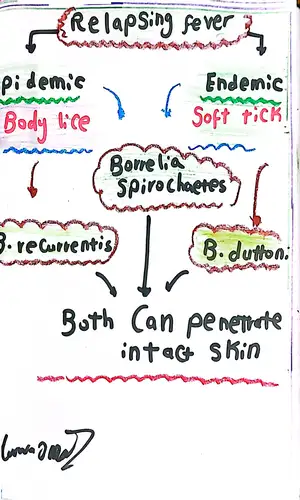 Relapsing fever
pidemic
Endemic
Body lice
Soft tick
Borrelia
spirochaetes
B. recurrentis
B. duttoni
Both Can penetrate
intact skin